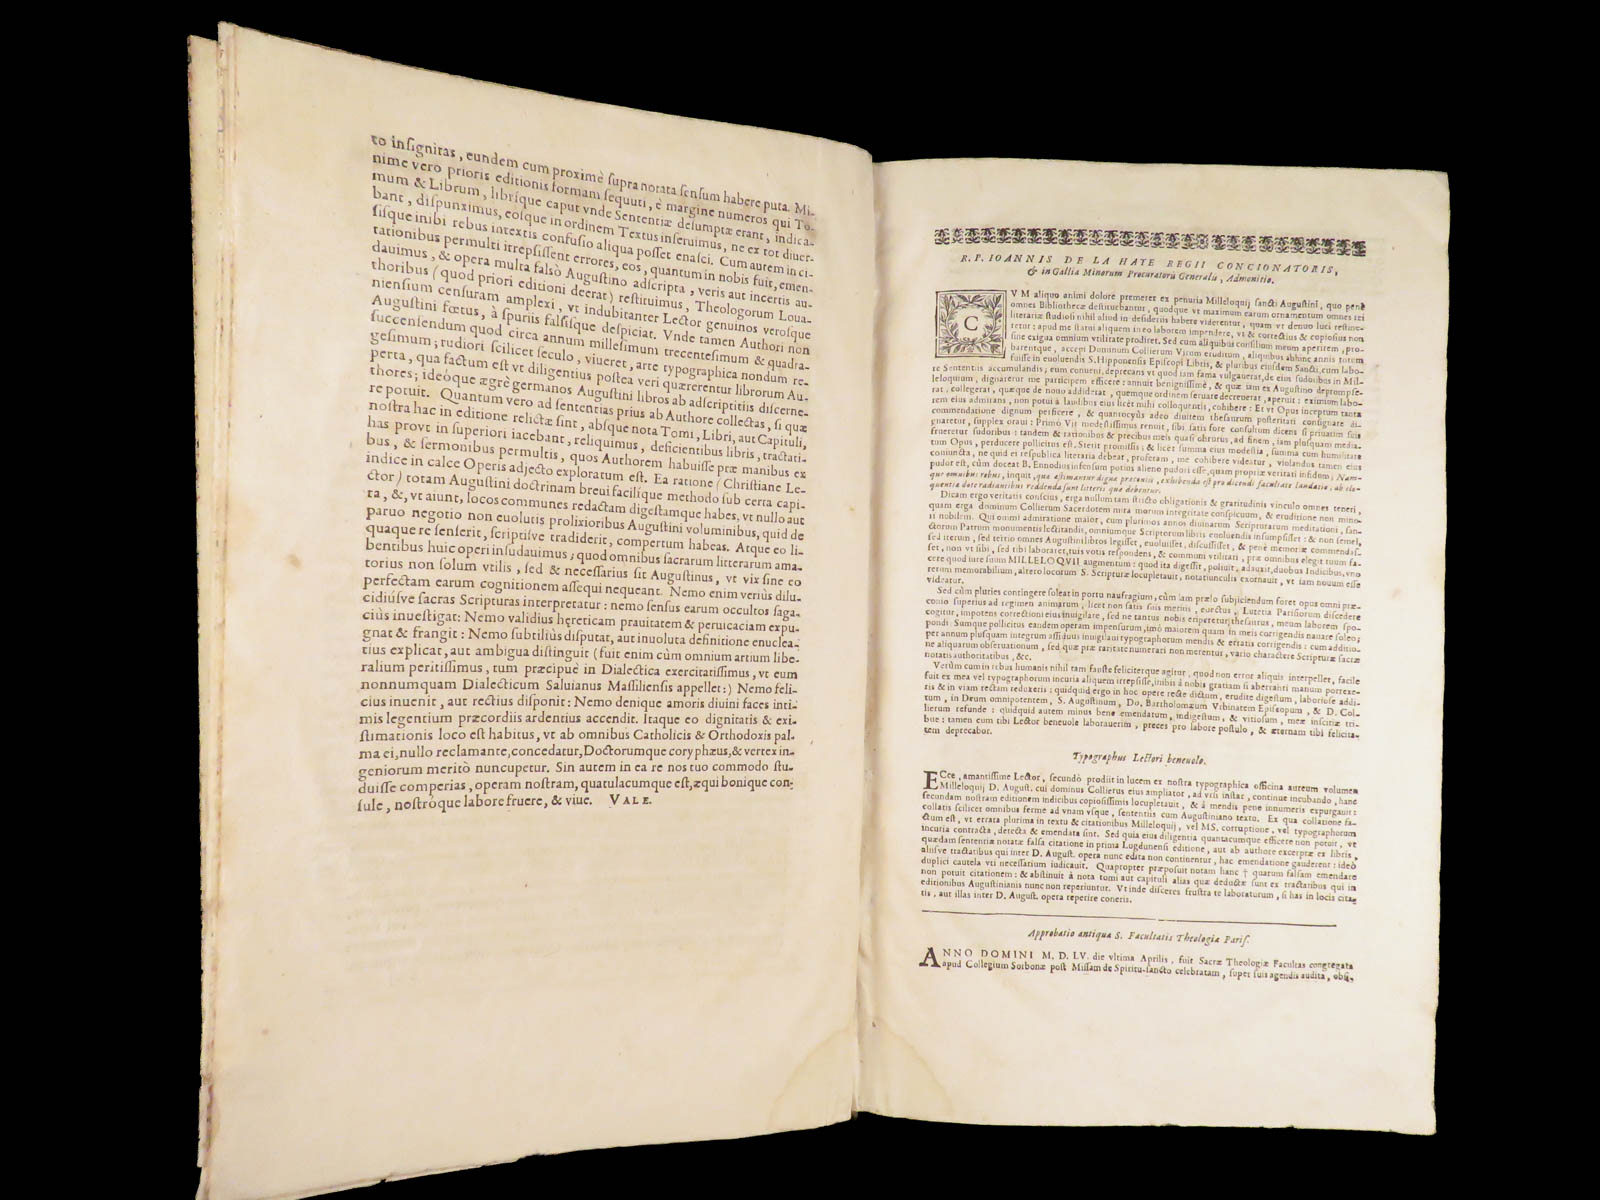 to insignitas, eundem cum proximè supra notata sensum habere puta. Mi-
nime vero prioris editionis formam sequuti, è margine numeros qui To-
mum & Librum, librisque caput vnde Sententiæ desumptæ erant, indica-
bant, dispunximus, eosque in ordinem Textus inseruimus, ne ex tot diuer-
sisque inibi rebus intextis confusio aliqua posset enasci. Cum autem in ci-
tationibus permulti irrepsissent errores, eos, quantum in nobis fuit, emen-
dauimus, & opera multa falsò Augustino adscripta, veris aut incertis au-
thoribus (quod priori editioni deerat) restituimus, Theologorum Loua-
niensium censuram amplexi, vt indubitanter Lector genuinos verosque
Augustini fœtus, à spuriis falsisque despiciat. Vnde tamen Authori non
succensendum quod circa annum millesimum trecentesimum & quadra-
gesimum; rudiori scilicet seculo, viueret, arte typographica nondum re-
perta, qua factum est vt diligentius postea veri quærerentur librorum Au-
thores; ideóque ægrè germanos Augustini libros ab adscriptitiis discerne-
re potuit. Quantum vero ad sententias prius ab Authore collectas, si quæ
nostra hac in editione relictæ sint, absque nota Tomi, Libri, aut Capituli,
has prout in superiori iacebant, reliquimus, deficientibus libris, tractati-
bus, & sermonibus permultis, quos Authorem habuisse præ manibus ex
indice in calce Operis adjecto exploratum est. Ea ratione (Christiane Le-
ctor) totam Augustini doctrinam breui facilique methodo sub certa capi-
ta, &, vt aiunt, locos communes redactam digestamque habes, vt nullo aut
paruo negotio non euolutis prolixioribus Augustini voluminibus, quid de
quaque re senserit, scriptisve tradiderit, compertum habeas. Atque eo li-
bentibus huic operi insudauimus; quod omnibus sacrarum litterarum ama-
torius non solum vtilis, sed & necessarius sit Augustinus, vt vix sine eo
perfectam earum cognitionem assequi nequeant. Nemo enim veriùs dilu-
cidiúsve sacras Scripturas interpretatur: nemo sensus earum occultos saga-
ciùs inuestigat: Nemo validius hęreticam prauitatem & peruicaciam expu-
gnat & frangit: Nemo subtiliùs disputat, aut inuoluta definitione enuclea-
tius explicat, aut ambigua distinguit (fuit enim cùm omnium artium libe-
ralium peritissimus, tum præcipuè in Dialectica exercitatissimus, vt eum
nonnumquam Dialecticum Saluianus Massiliensis appellet:) Nemo feli-
cius inuenit, aut rectius disponit: Nemo denique amoris diuini faces inti-
mis legentium præcordiis ardentius accendit. Itaque eo dignitatis & exi-
stimationis loco est habitus, vt ab omnibus Catholicis & Orthodoxis pal-
ma ei, nullo reclamante, concedatur, Doctorumque coryphæus, & vertex in-
geniorum meritò nuncupetur. Sin autem in ea re nos tuo commodo stu-
duisse comperias, operam nostram, quatulacumque est, æqui bonique con-
sule, nostróque labore fruere, & viue. VALE.
R. P. IOANNIS DE LA HAYE REGII CONCIONATORIS,
& in Gallia Minorum Procuratoris Generalis, Admonitio.
CVM aliquo animi dolore premerer ex penuria Milleloquij sancti Augustini, quo penè
omnes Bibliothecæ destituebantur, quodque vt maximum earum ornamentum omnes rei
literariæ studiosi nihil aliud in desideriis habere viderentur, quam vt denuo luci restitue-
retur: apud me statui aliquem in eo laborem impendere, vt & correctius & copiosius non
sine exigua omnium vtilitate prodiret. Sed cum aliquibus consilium meum aperirem, pro-
barentque, accepi Dominum Collierum Virum eruditum, aliquibus abhinc annis totum
fuisse in euoluendis S. Hipponensis Episcopi Libris, & pluribus eiusdem Sancti, cum labo-
re Sententiis accumulandis; eum conueni, deprecans vt quod iam fama vulgauerat, de eius sudoribus in Mil-
leloquium, dignaretur me participem efficere: annuit benignissimè, & quæ iam ex Augustino deprompse-
rat, collegerat, quæque de nouo addiderat, quemque ordinem seruare decreuerat, aperuit: eximium labo-
rem eius admirans, non potui à laudibus eius licèt mihi colloquutis, cohibere: Et vt Opus inceptum tanta
commendatione dignum perficere, & quantocyùs adeo diuitem thesaurum posteritati consignate di-
gnaretur, supplex oraui: Primò Vir modestissimus renuit, sibi satis fore consultum dicens si priuatim suis
frueretur sudoribus: tandem & rationibus & precibus meis quasi obrutus, ad finem, iam plusquam media-
tum Opus, perducere pollicitus est. Stetit promissis; & licèt summa eius modestia, summa cum humilitate
coniuncta, ne quid ei respublica literaria debeat, profetam, me cohibere videatur, violandus tamen eius
pudor est, cùm doceat B. Ennodius infensum potius alieno pudori esse, quam propriæ veritati infidum; Nam-
que omnibus rebus, inquit, quæ æstimantur digna præconiis, exhibenda est pro dicendi facultate laudatio; ab elo-
quentiæ dote radiantibus reddenda sunt litteris quæ debentur.
Dicam ergo veritatis conscius, erga nullum tam stricto obligationis & gratitudinis vinculo omnes teneri,
quam erga dominum Collierum Sacerdotem mira morum integritate conspicuum, & eruditione non mino-
ri nobilem. Qui omni admiratione maior, cum plurimos annos diuinarum Scripturarum meditationi, san-
ctorum Patrum monumentis lectitandis, omniumque Scriptorum libris euoluendis insumpsisset: & non semel,
sed iterum, sed tertio omnes Augustini libros legisset, euoluisset, discussisset, & penè memoriæ commendas-
set, non vt sibi, sed tibi laboraret, tuis votis respondens, & communi vtilitati, præ omnibus elegit tuum fa-
cere quod iure suum MILLELOQVII augmentum: quod ita digessit, poliuit, adauxit, duobus Indicibus, vno
rerum memorabilium, altero locorum S. Scripturæ locupletauit, notatiunculis exornauit, vt iam nouum esse
videatur.
Sed cùm pluries contingere soleat in portu naufragium, cùm iam prælo subjiciendum foret opus omni præ-
conio superius ad regimen animarum, licèt non satis suis meritis, euectus, Lutetia Parisiorum discedere
cogitur, impotens correctioni eius inuigilare, sed ne tantus nobis eriperetur thesaurus, meum laborem spo-
pondi. Sumque pollicitus eandem operam impensurum, imò maiorem quam in meis corrigendis nauare soleo;
per annum plusquam integrum assiduus inuigilaui typographorum mendis & erratis corrigendis: cum additio-
ne aliquarum obseruationum, sed quæ præ raritate numerari non merentur, vario charactere Scripturæ sacræ
notatis authoritatibus, &c.
Verùm cum in rebus humanis nihil tam faustè feliciterque agitur, quod non error aliquis interpellet, facile
fuit ex mea vel typographorum incuria aliquem irrepsisse, inibis à nobis gratiam si aberranti manum porrexe-
ris & in viam rectam reduxeris: quidquid ergo in hoc opere rectè dictum, erudite digestum, laboriose addi-
tum, in Deum omnipotentem, S. Augustinum, Do. Bartholomæum Vrbinatem Episcopum, & D. Col-
lierum refunde: quidquid autem minus bene emendatum, indigestum, & vitiosum, meæ inscitiæ tri-
bue: tamen cum tibi Lector beneuole laborauerim, preces pro labore postulo, & æternam tibi felicita-
tem deprecabor.
Typographus Lectori beneuolo.
ECce, amantissime Lector, secundò prodiit in lucem ex nostra typographica officina aureum volumen
Milleloquij D. August. cui dominus Collierus eius ampliator, ad vrsi instar, continue incubando, hanc
secundam nostram editionem indicibus copiosissimis locupletauit, & à mendis pene innumeris expurgauit:
collatis scilicet omnibus ferme ad vnam vsque, sententiis cum Augustiniano textu. Ex qua collatione fa-
ctum est, vt errata plurima in textu & citationibus Milleloquij, vel MS. corruptione, vel typographorum
incuria contracta, detecta & emendata sint. Sed quia eius diligentia quantacumque efficere non potuit, vt
quædam sententiæ notatæ falsa citatione in prima Lugdunensi editione, aut ab authore excerptæ ex libris,
aliisve tractatibus qui inter D. August. opera nunc edita non continentur, hac emendatione gauderent: ideò
duplici cautela vti necessarium iudicauit. Quapropter præposuit notam hanc † quarum falsam emendare
non potuit citationem: & abstinuit à nota tomi aut capituli alias quæ deductæ sunt ex tractatibus qui in
editionibus Augustinianis nunc non reperiuntur. Vt inde disceres frustra te laboraturum, si has in locis cita-
tis, aut illas inter D. August. opera reperire coneris.
Approbatio antiqua S. Facultatis Theologiæ Paris.
ANNO DOMINI M. D. LV. die vltima Aprilis, fuit Sacræ Theologiæ Facultas congregata
apud Collegium Sorbonæ post Missam de Spiritu-sancto celebratam, super suis agendis audita, obsi-